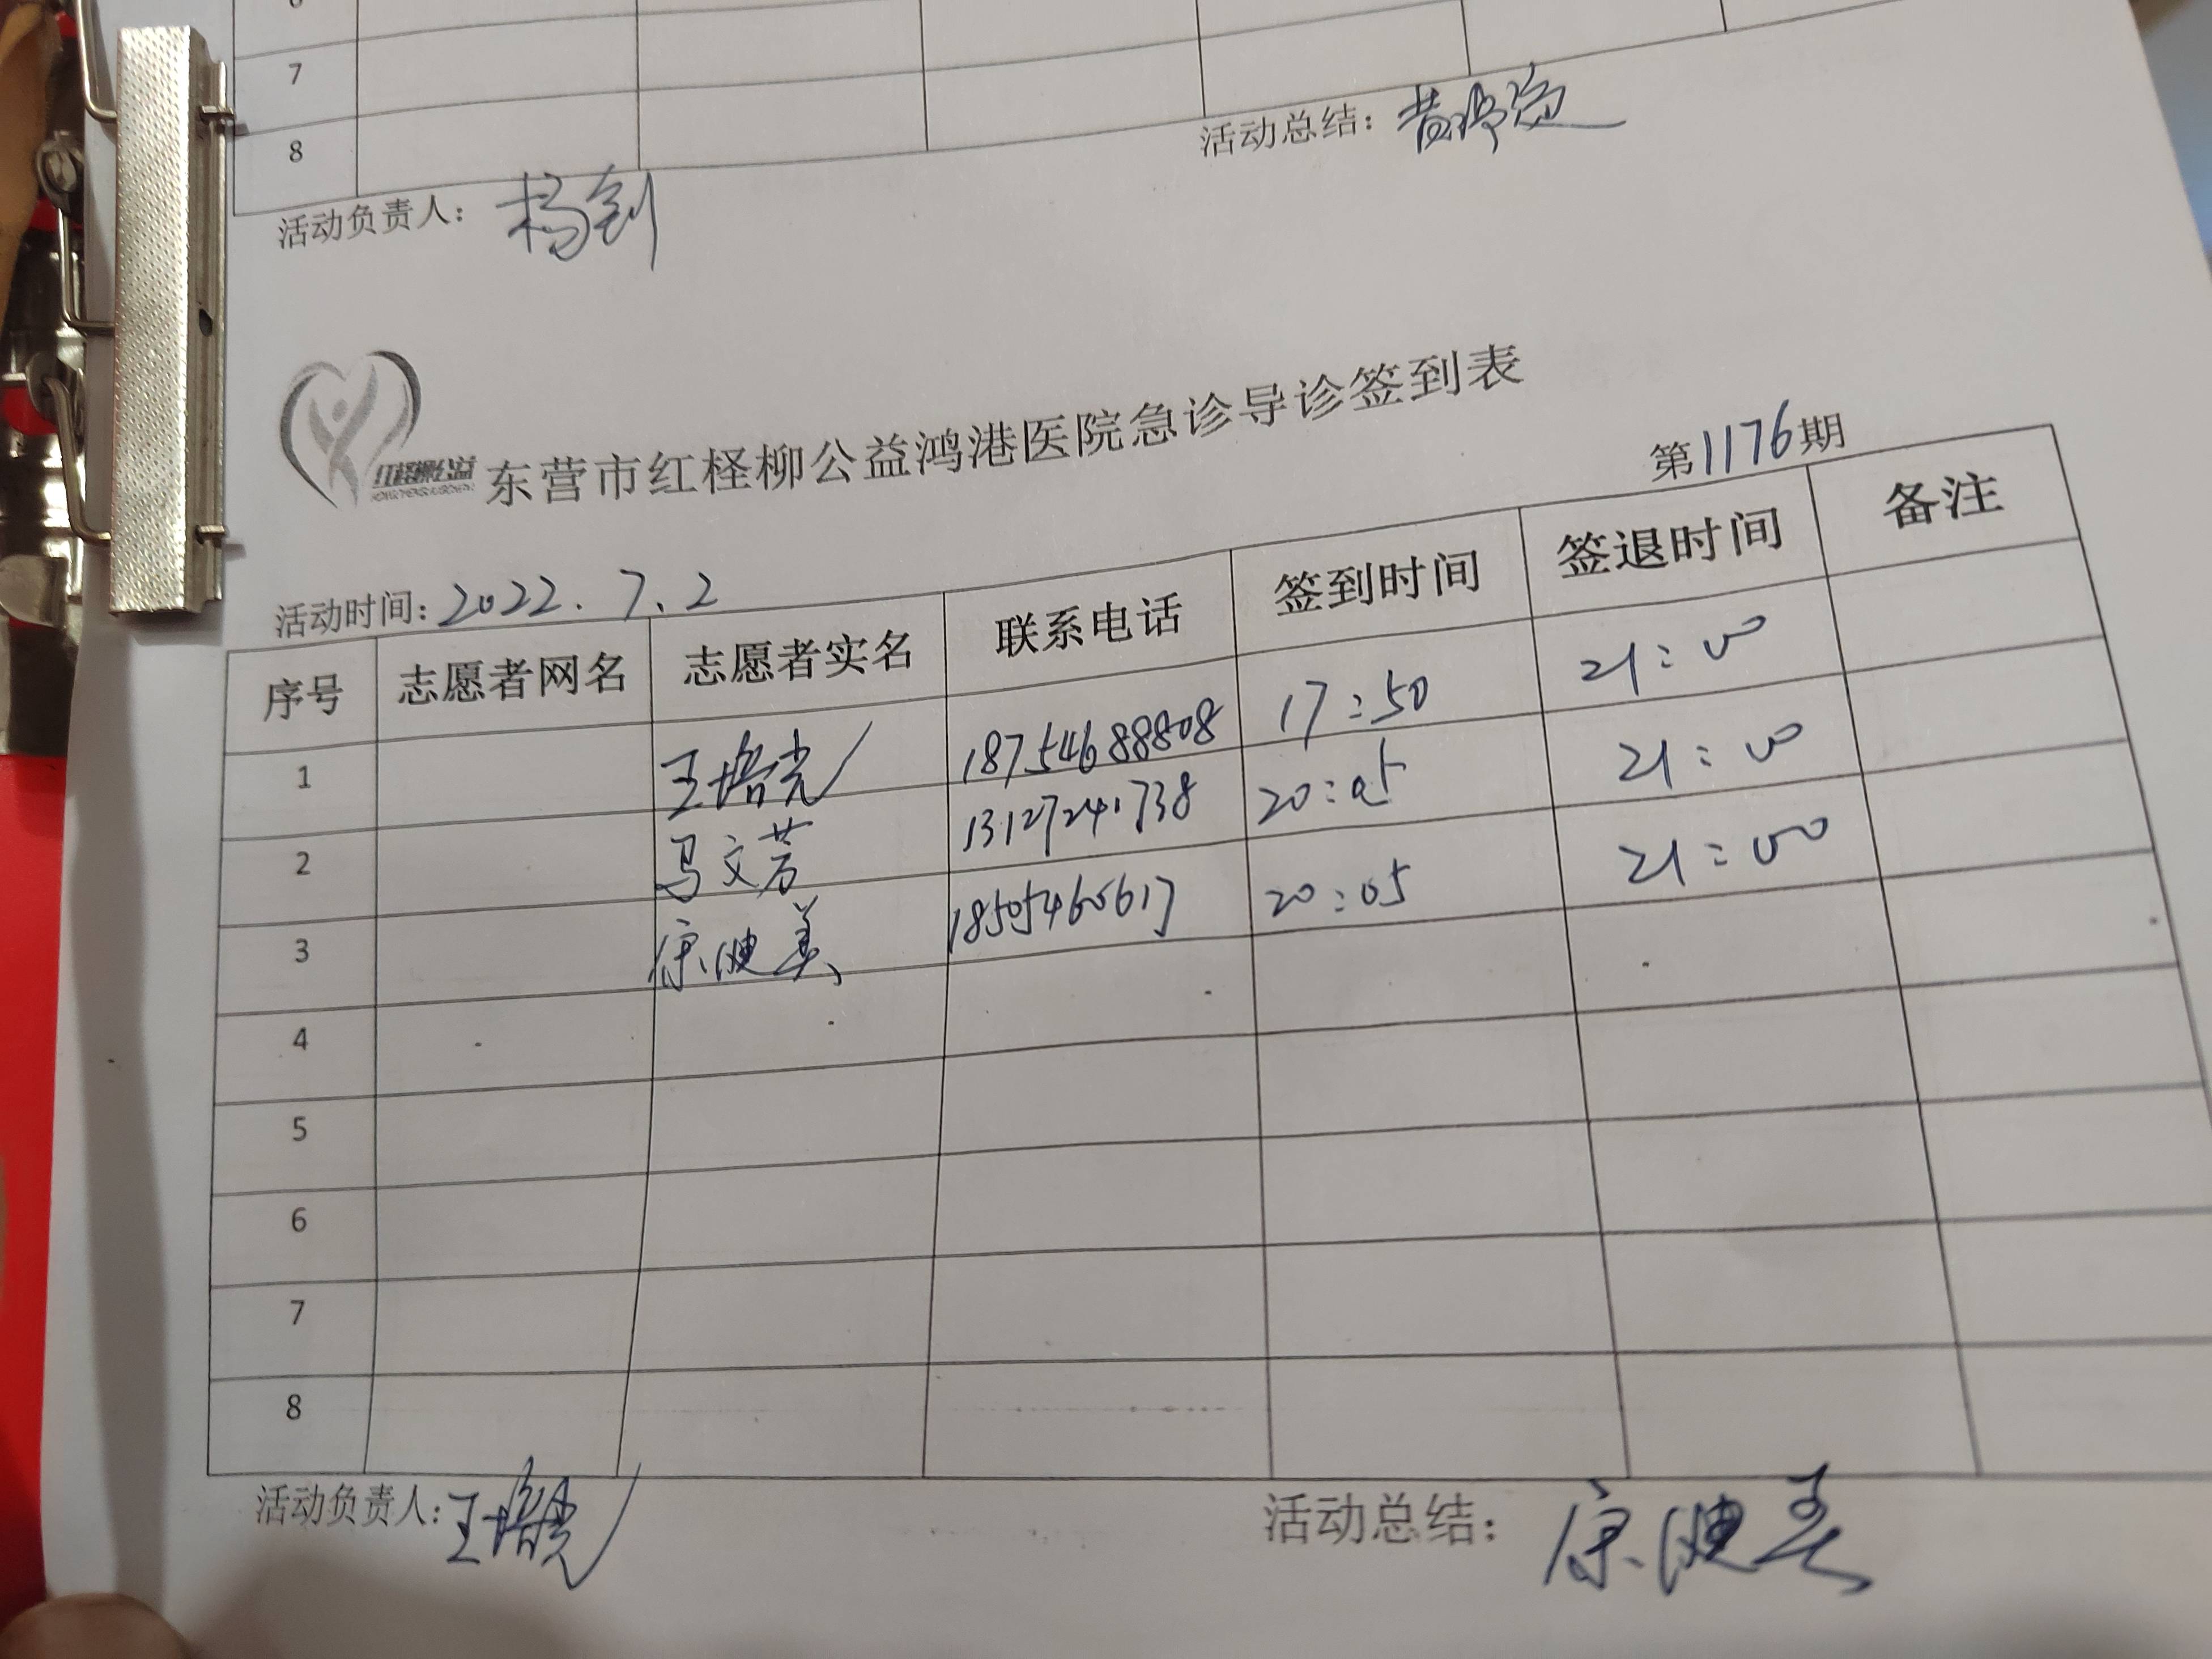 7
8
活动负责人：杨剑
活动总结：黄
红柽柳公益
东营市红柽柳公益鸿港医院急诊导诊签到表
第1176期
活动时间：2022.7.2
序号 志愿者网名 志愿者实名 联系电话 签到时间 签退时间 备注
1 王培光 18754688808 17:50 21:00
2 马文芳 13127241738 20:05 21:00
3 康健美 18505460617 20:05 21:00
4
5
6
7
8
活动负责人：王培光
活动总结：康健美